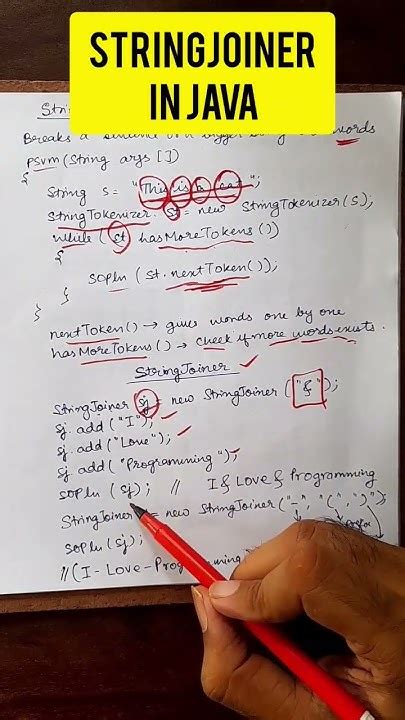 STRINGJOINER
IN JAVA
Breaks a sentence or a bigger words
psvm (String args [])
{
String s = "This is a cat";
StringTokenizer st = new StringTokenizer (S);
while (st hasMoreTokens ())
{
sopln (st.nextToken());
}
}
nextToken() → gives words one by one
hasMoreTokens () → check if more words exists.
StringJoiner
StringJoiner sj = new StringJoiner ("&");
sj.add ("I");
sj.add ("Love");
sj.add ("Programming");
sopln (sj); // I & Love & Programming
StringJoiner = new StringJoiner ("-", "(", ")");
prefix
sopln (sj);
// (I - Love - Programming